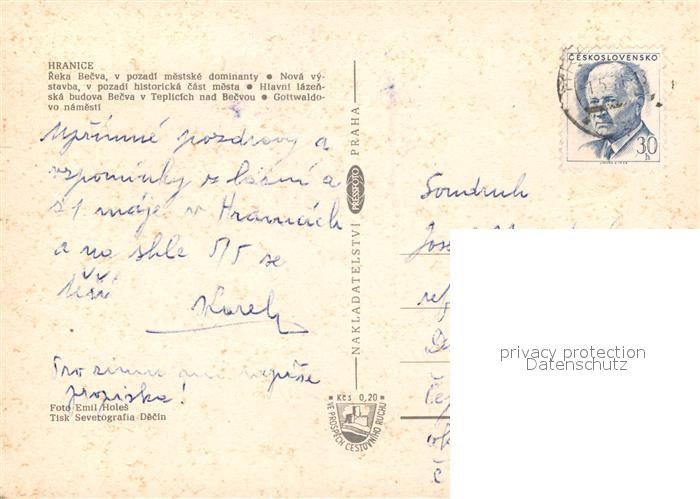 HRANICE
Řeka Bečva, v pozadí městské dominanty ● Nová vý-
stavba, v pozadí historická část města ● Hlavní lázeň-
ská budova Bečva v Teplicích nad Bečvou ● Gottwaldo-
vo náměstí
Upřímné pozdravy a
vzpomínky z lázní a
z 1 máje v Hranicích
a na shle 5/5 se
těší
Karel
Pro zimu mi nepíše
propiska!
Foto Emil Holeš
Tisk Severografia Děčín
NAKLADATELSTVÍ PRESSFOTO PRAHA
Kčs 0,20
VE PROSPĚCH CESTOVNÍHO RUCHU
ČESKOSLOVENSKO
30
h
Soudruh
Josef
privacy protection
Datenschutz